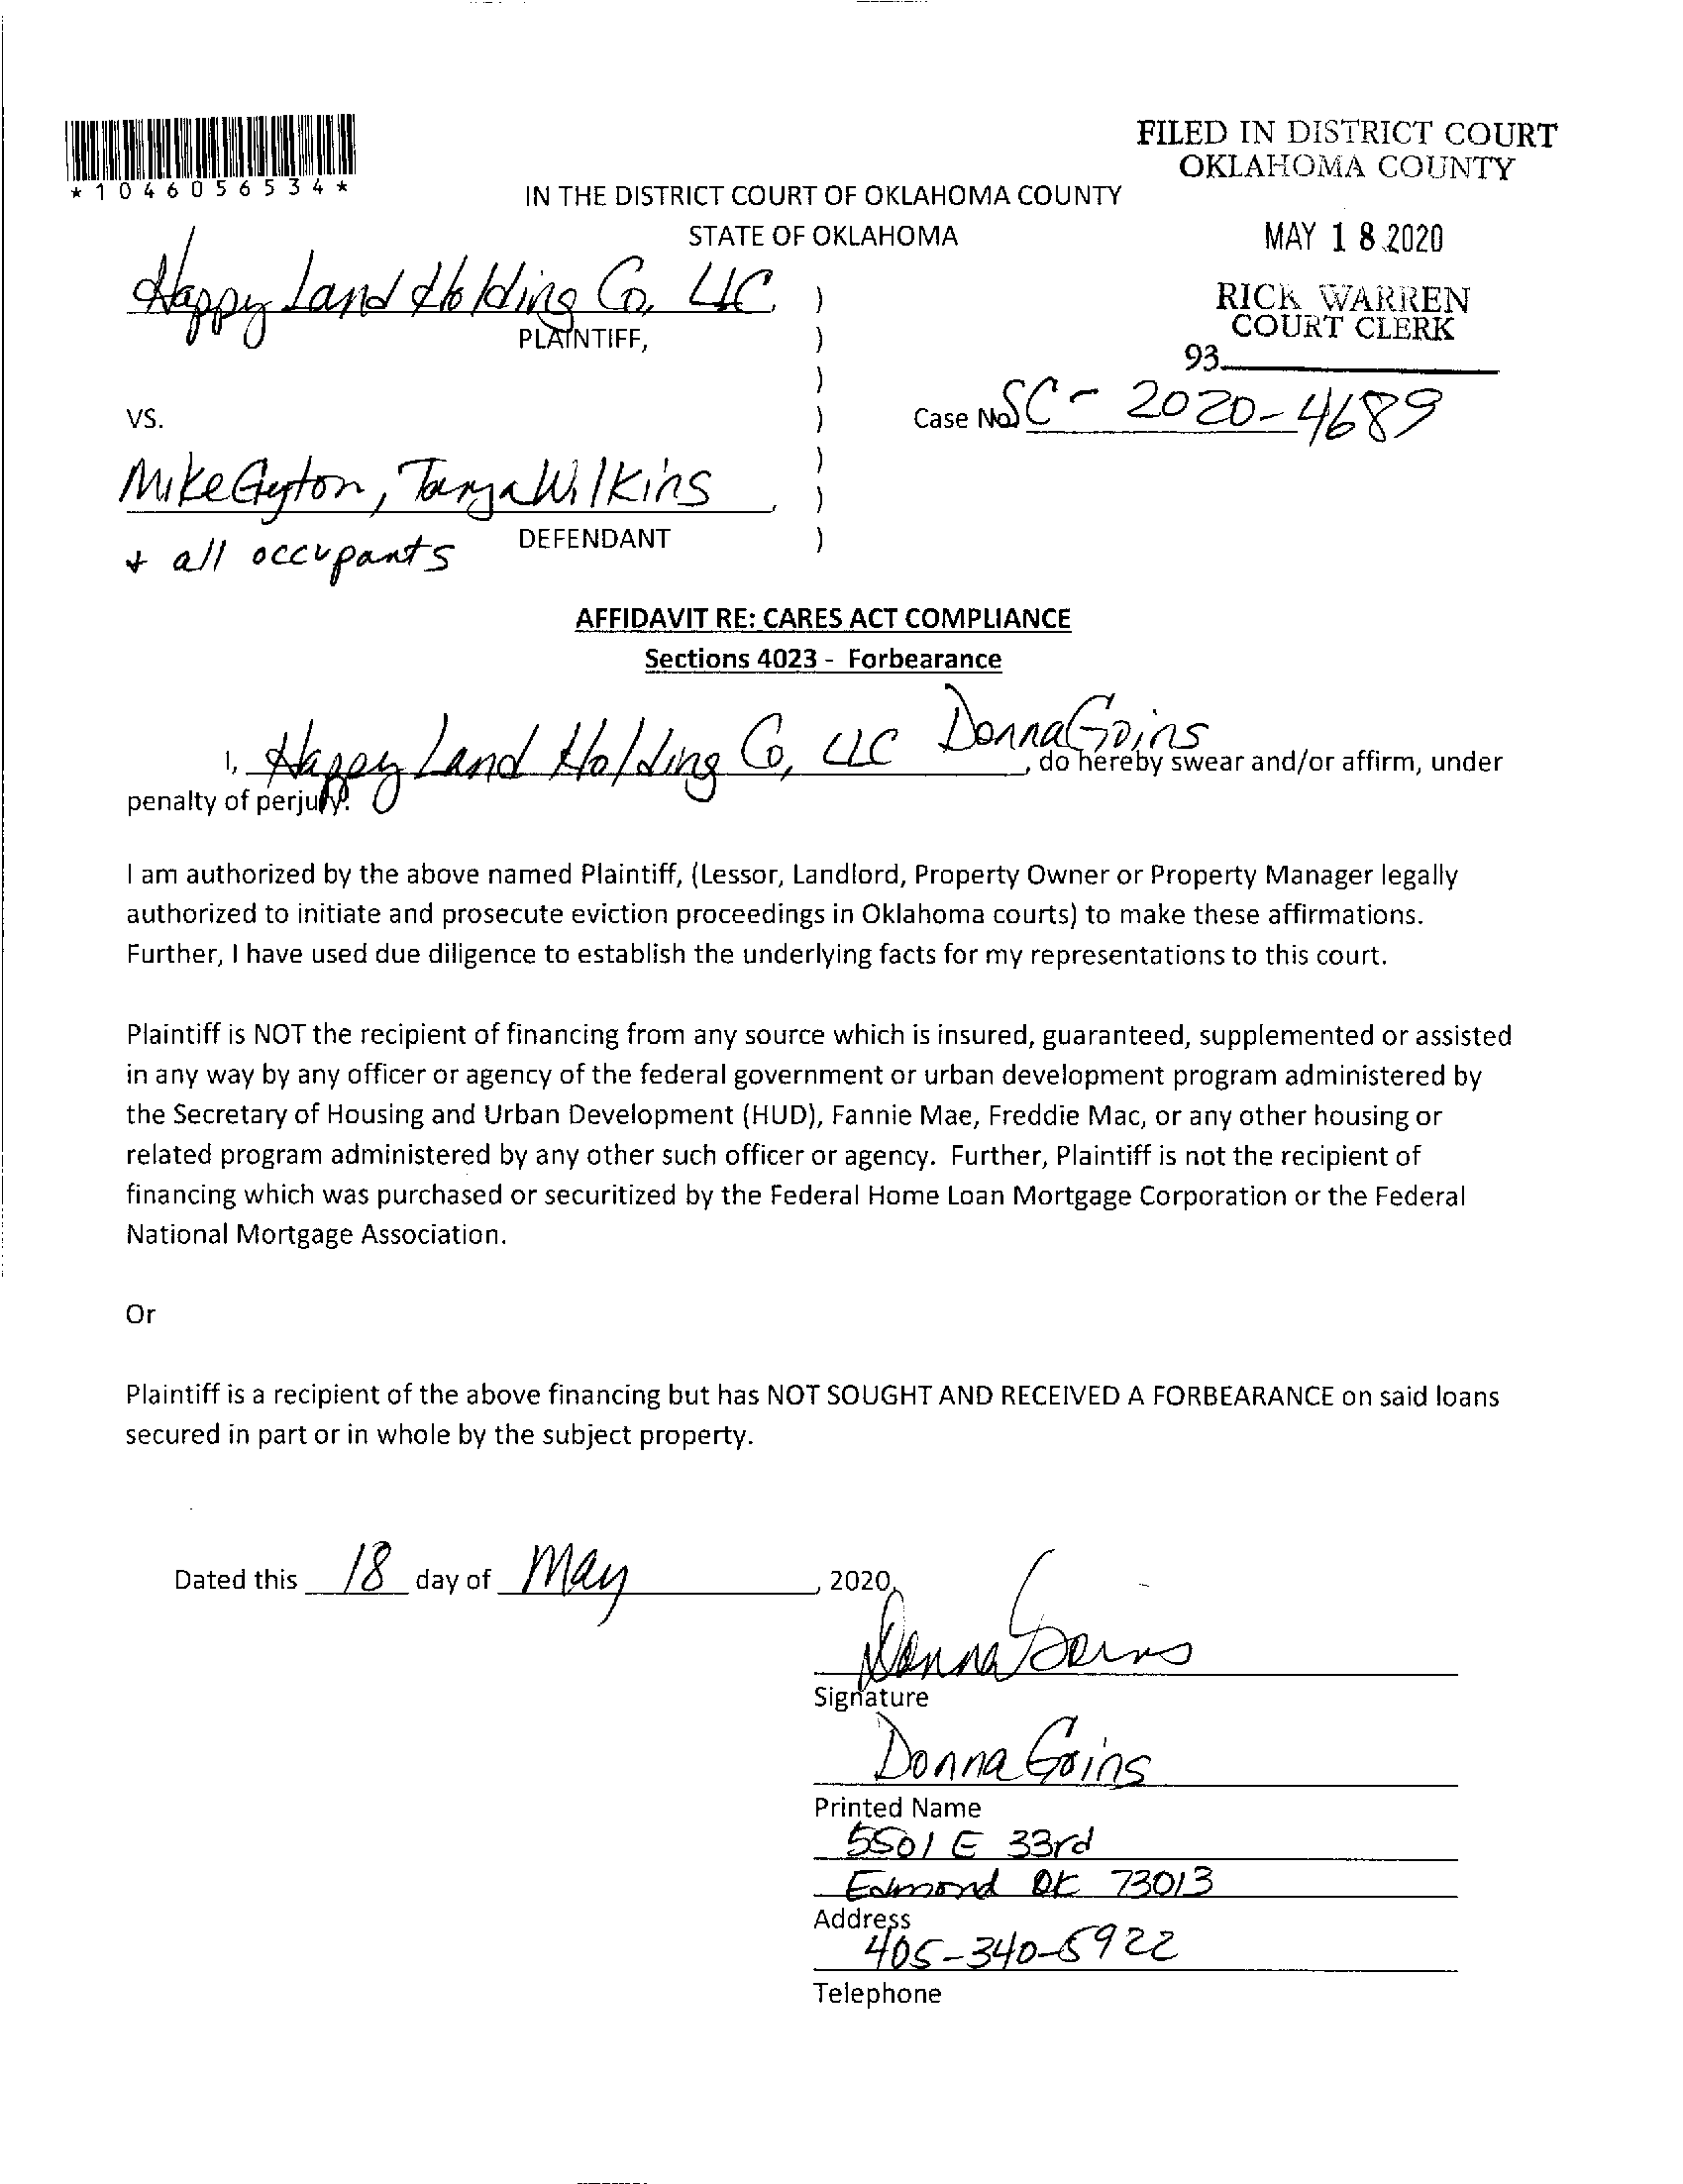 *1046056534*
FILED IN DISTRICT COURT
OKLAHOMA COUNTY
MAY 18 2020
RICK WARREN
COURT CLERK
93
IN THE DISTRICT COURT OF OKLAHOMA COUNTY
STATE OF OKLAHOMA
Happy Land Holding Co, LLC )
PLAINTIFF, )
)
VS. ) Case No. SC-2020-4689
)
Mike Gyton, Tanya Wilkins, )
+ all occupants DEFENDANT )
AFFIDAVIT RE: CARES ACT COMPLIANCE
Sections 4023 - Forbearance
I, Happy Land Holding Co, LLC Donna Goins, do hereby swear and/or affirm, under
penalty of perjury:
I am authorized by the above named Plaintiff, (Lessor, Landlord, Property Owner or Property Manager legally
authorized to initiate and prosecute eviction proceedings in Oklahoma courts) to make these affirmations.
Further, I have used due diligence to establish the underlying facts for my representations to this court.
Plaintiff is NOT the recipient of financing from any source which is insured, guaranteed, supplemented or assisted
in any way by any officer or agency of the federal government or urban development program administered by
the Secretary of Housing and Urban Development (HUD), Fannie Mae, Freddie Mac, or any other housing or
related program administered by any other such officer or agency. Further, Plaintiff is not the recipient of
financing which was purchased or securitized by the Federal Home Loan Mortgage Corporation or the Federal
National Mortgage Association.
Or
Plaintiff is a recipient of the above financing but has NOT SOUGHT AND RECEIVED A FORBEARANCE on said loans
secured in part or in whole by the subject property.
Dated this 18 day of May, 2020.
Donna Goins
Signature
Donna Goins
Printed Name
5501 E 33rd
Edmond OK 73013
Address
405-340-5922
Telephone